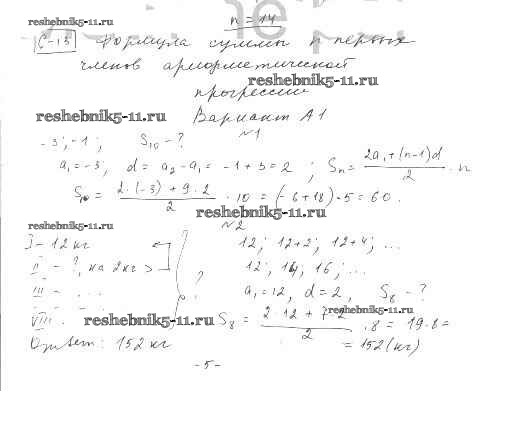 reshebnik5-11.ru
n = 14
С-13 Формула суммы n первых
членов арифметической
reshebnik5-11.ru
прогрессии
reshebnik5-11.ru
Вариант А1
№1
-3; -1; S₁₀ - ?
a₁ = -3, d = a₂ - a₁ = -1 + 3 = 2; Sₙ = (2a₁ + (n-1)d)/2 · n
S₁₀ = (2·(-3) + 9·2)/2 · 10 = (-6 + 18)·5 = 60.
reshebnik5-11.ru
reshebnik5-11.ru
№2
I - 12 кг
12; 12+2; 12+4; ...
II - ?, на 2кг >
12; 14; 16; ...
III - ... ?
a₁ = 12, d = 2, S₈ - ?
VIII.
reshebnik5-11.ru
S₈ = (2·12 + 7·2)/2 · 8 = 19·8 =
reshebnik5-11.ru
Ответ: 152 кг
= 152 (кг)
-5-